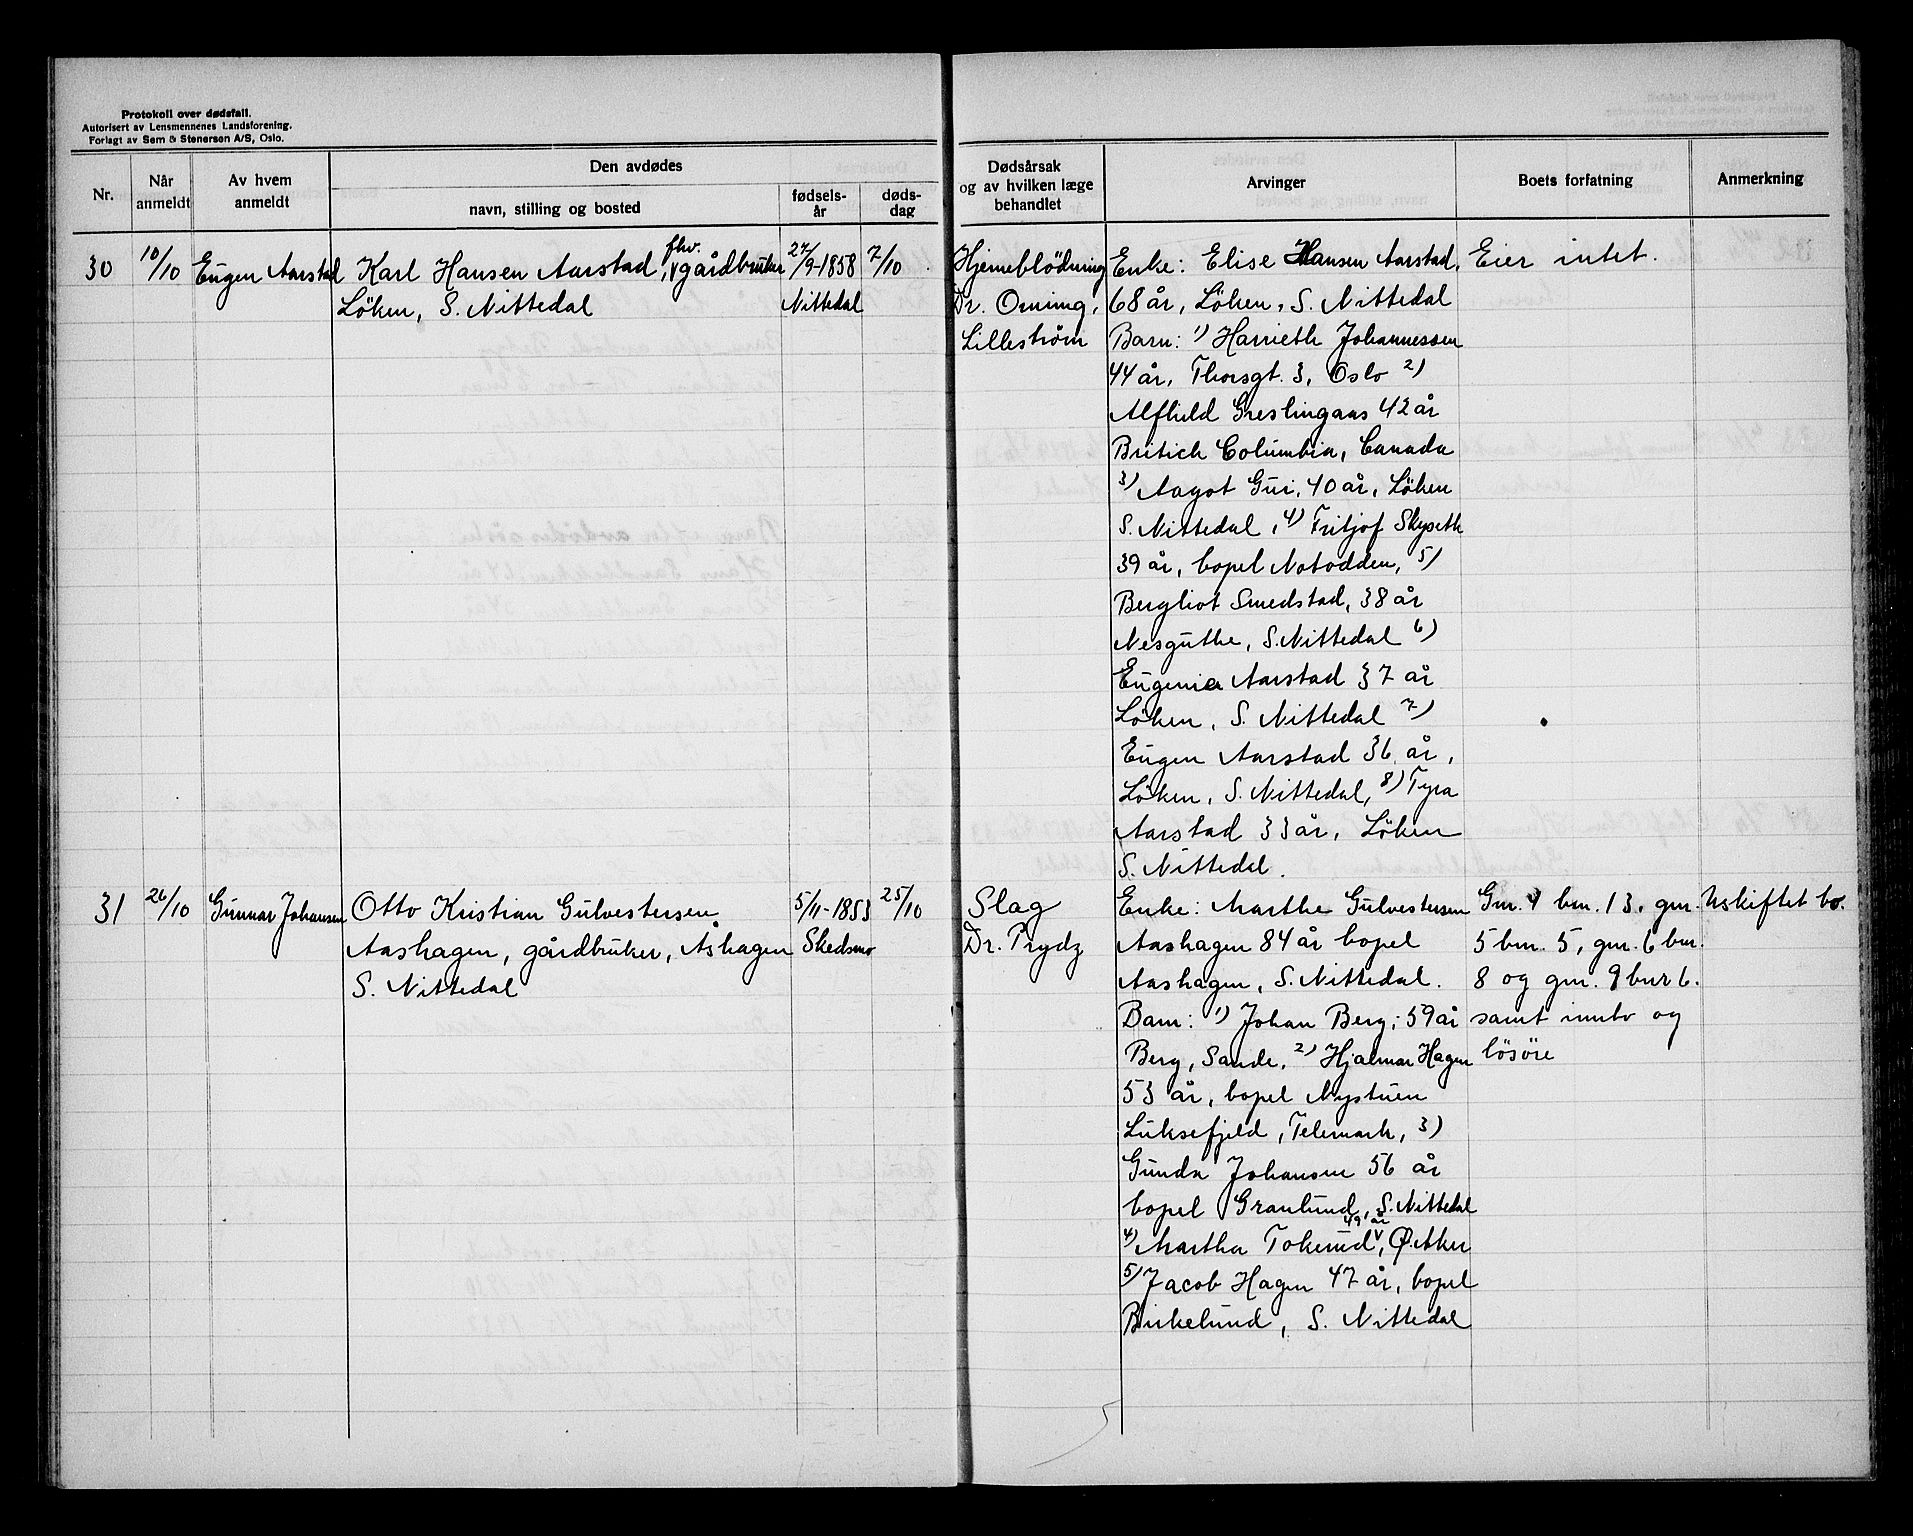 Protokoll over dødsfall.
Autorisert av Lensmennenes Landsforening.
Forlagt av Sem & Stenersen A/S, Oslo.
Nr.
Når anmeldt
Av hvem anmeldt
Den avdødes
navn, stilling og bosted
fødsels-
år
døds-
dag
Dødsårsak
og av hvilken læge
behandlet
Arvinger
Boets forfatning
Anmerkning
30
10/10
Eugen Aarstad
Karl Hansen Aarstad, fhv. gårdbruker
Löken, S. Nittedal
27/9-1858
Nittedal
7/10
Hjerneblödning
Dr. Orning,
Lilleström
Enke: Elise Hansen Aarstad,
68 år, Löken, S. Nittedal
Barn: 1) Harrieth Johannessen
44 år, Thorsgt. 3, Oslo 2)
Alfhild Greslingaas 42 år
Britich Columbia, Canada
3) Aagot Gui, 40 år, Löken
S. Nittedal, 4) Fritjof Skyseth
39 år, bopel Notodden, 5)
Bergliot Smedstad, 38 år
Nesguthe, S. Nittedal 6)
Eugenie Aarstad 37 år
Löken, S. Nittedal 7)
Eugen Aarstad 36 år,
Löken, S. Nittedal, 8) Tyra
Aarstad 33 år, Löken
S. Nittedal.
Eier intet.
31
26/10
Gunnar Johansen
Otto Kristian Gulvestersen
Aashagen, gårdbruker, Åshagen
S. Nittedal
5/11-1853
Skedsmo
25/10
Slag
Dr. Prydz
Enke: Marthe Gulvestersen
Aashagen 84 år bopel
Aashagen, S. Nittedal.
Barn: 1) Johan Berg, 59 år
Berg, Sande, 2) Hjalmar Hagen
53 år, bopel Nystuen
Luksefjeld, Telemark, 3)
Gunda Johansen 56 år
bopel Granlund, S. Nittedal
4) Martha Tokerud 49 år, Ø. Aker
5) Jacob Hagen 47 år, bopel
Birkelund, S. Nittedal
Gnr. 4 bnr. 13, gnr.
5 bnr. 5, gnr. 6 bnr.
8 og gnr. 9 bnr 6.
samt innbo og
lösöre
Uskiftet bo.